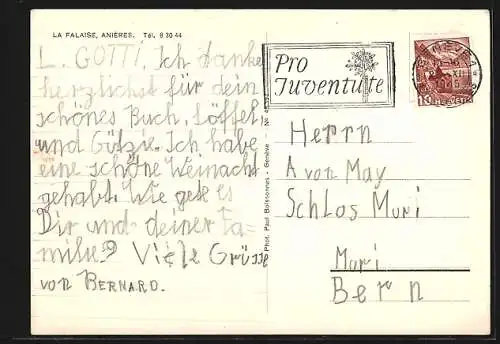 LA FALAISE, ANIÈRES. Tél. 8 20 44
L. GOTTI. Ich danke
herzlichst für dein
schönes Buch, Löffel,
und Götzie. Ich habe
eine schöne Weinacht
gehabt. Wie gete es
Dir und deiner Fa-
milie? Viele Grüsse
von BERNARD.
Pro
Juventute
GENÈVE 1
XII
10 HELVETIA
Phot. Paul Boissonnas - Genève
Herrn
A von May
Schlos Muri
Muri
Bern